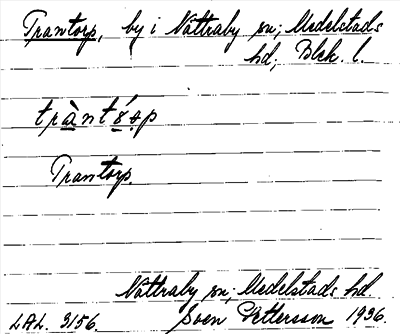 Trantorp, by i Nättraby sn; Medelstads
hd; Blek. l.
tràntórp
Trantorp.
Nättraby sn; Medelstads hd
LAL. 3156. Sven Pettersson 1936.